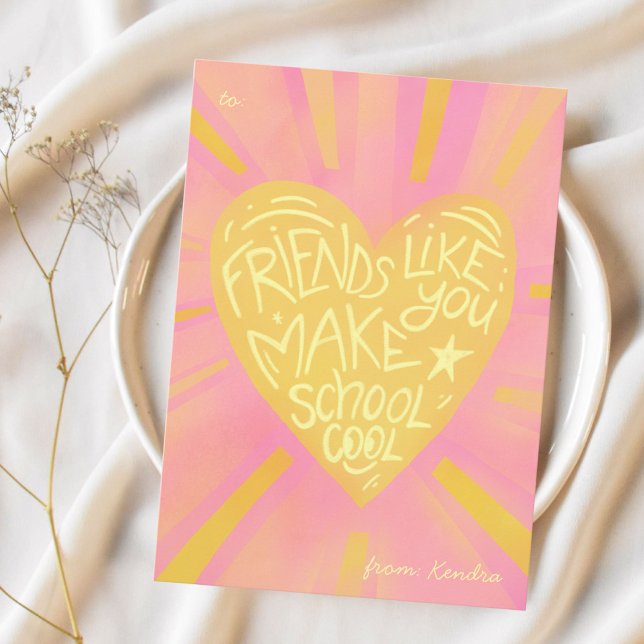 to:
FRIENDS LIKE
YOU
MAKE
SCHOOL
COOL
from: Kendra